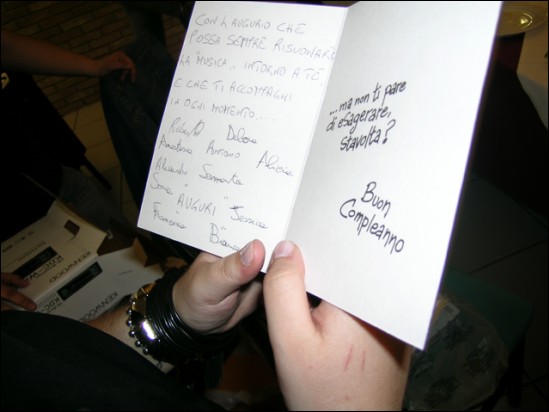 CON L'AUGURIO CHE
POSSA SEMPRE RISUONARE
LA "MUSICA" INTORNO A TE
E CHE TI ACCOMPAGNI
IN OGNI MOMENTO....
Roberto Debora
Anastasia Antonio Alessia
Alessandro Samantha
Sonia "AUGURI" Jessica
Francesca Bianca
...ma non ti pare
di esagerare,
stavolta?
Buon
Compleanno
KENWOOD
KENWOOD